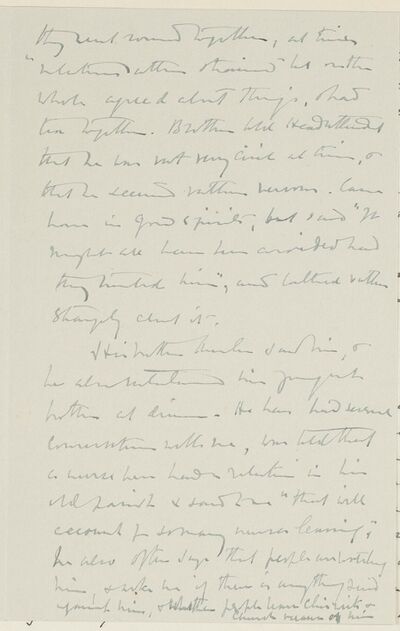 they went round together, at times
"relations rather strained" but on the
whole agreed about things, & had
tea together. Brother told Head Attendant
that he was not very civil at times, &
that he seemed rather nervous. Came
home in good spirits, but said "It
might all have been avoided had
they trusted him", and talked rather
strangely about it.
His brother has since saw him, &
he also entertained his youngest
brother at dinner. He has had several
conversations with me, was told that
a nurse here had a relation in his
old parish & said to me "that will
account for so many nurses leaving".
He also often says that people are watching
him, & asks me if there is anything said
against him, & whether people leave this &
church because of him